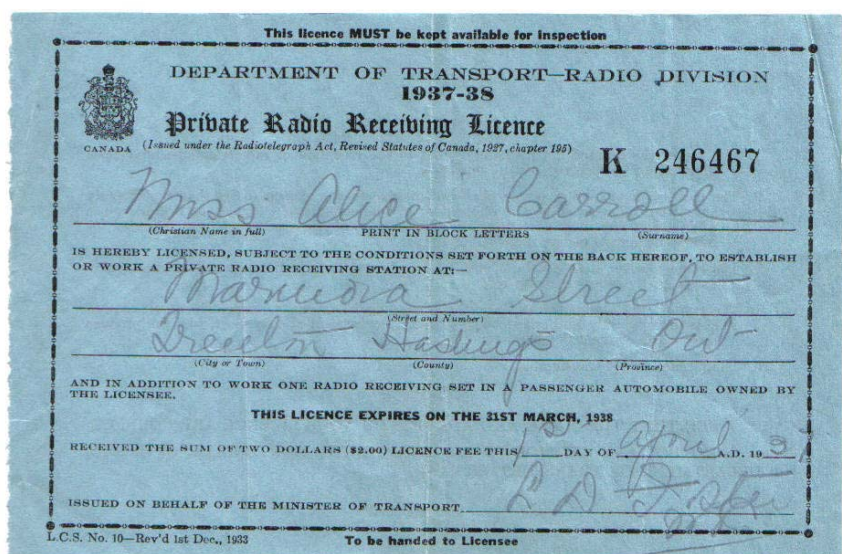 This licence MUST be kept available for inspection
DEPARTMENT OF TRANSPORT—RADIO DIVISION
1937-38
Private Radio Receiving Licence
CANADA
(Issued under the Radiotelegraph Act, Revised Statutes of Canada, 1927, chapter 195)
K 246467
Miss Alice Carroll
(Christian Name in full) PRINT IN BLOCK LETTERS (Surname)
IS HEREBY LICENSED, SUBJECT TO THE CONDITIONS SET FORTH ON THE BACK HEREOF, TO ESTABLISH
OR WORK A PRIVATE RADIO RECEIVING STATION AT:—
Street
(Street and Number)
Trenton Hastings Ont
(City or Town) (County) (Province)
AND IN ADDITION TO WORK ONE RADIO RECEIVING SET IN A PASSENGER AUTOMOBILE OWNED BY
THE LICENSEE.
THIS LICENCE EXPIRES ON THE 31ST MARCH, 1938
RECEIVED THE SUM OF TWO DOLLARS ($2.00) LICENCE FEE THIS 1st DAY OF April A.D. 1937
ISSUED ON BEHALF OF THE MINISTER OF TRANSPORT L D
L.C.S. No. 10—Rev'd 1st Dec., 1933 To be handed to Licensee